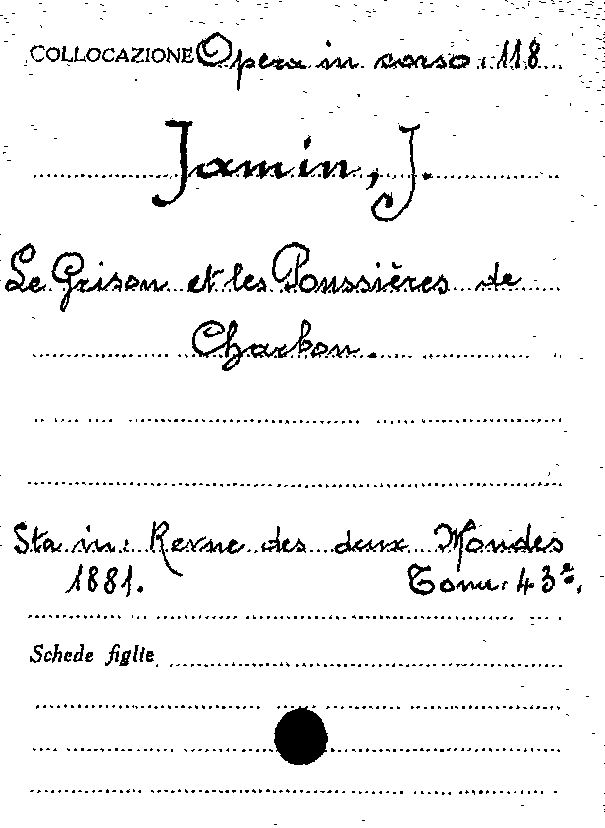 COLLOCAZIONE Opera in corso. 118
Jamin, J.
Le Grison et les Poussières de
Charbon.
Sta in: Revue des deux Mondes
1881. Tome. 43e.
Schede figlie